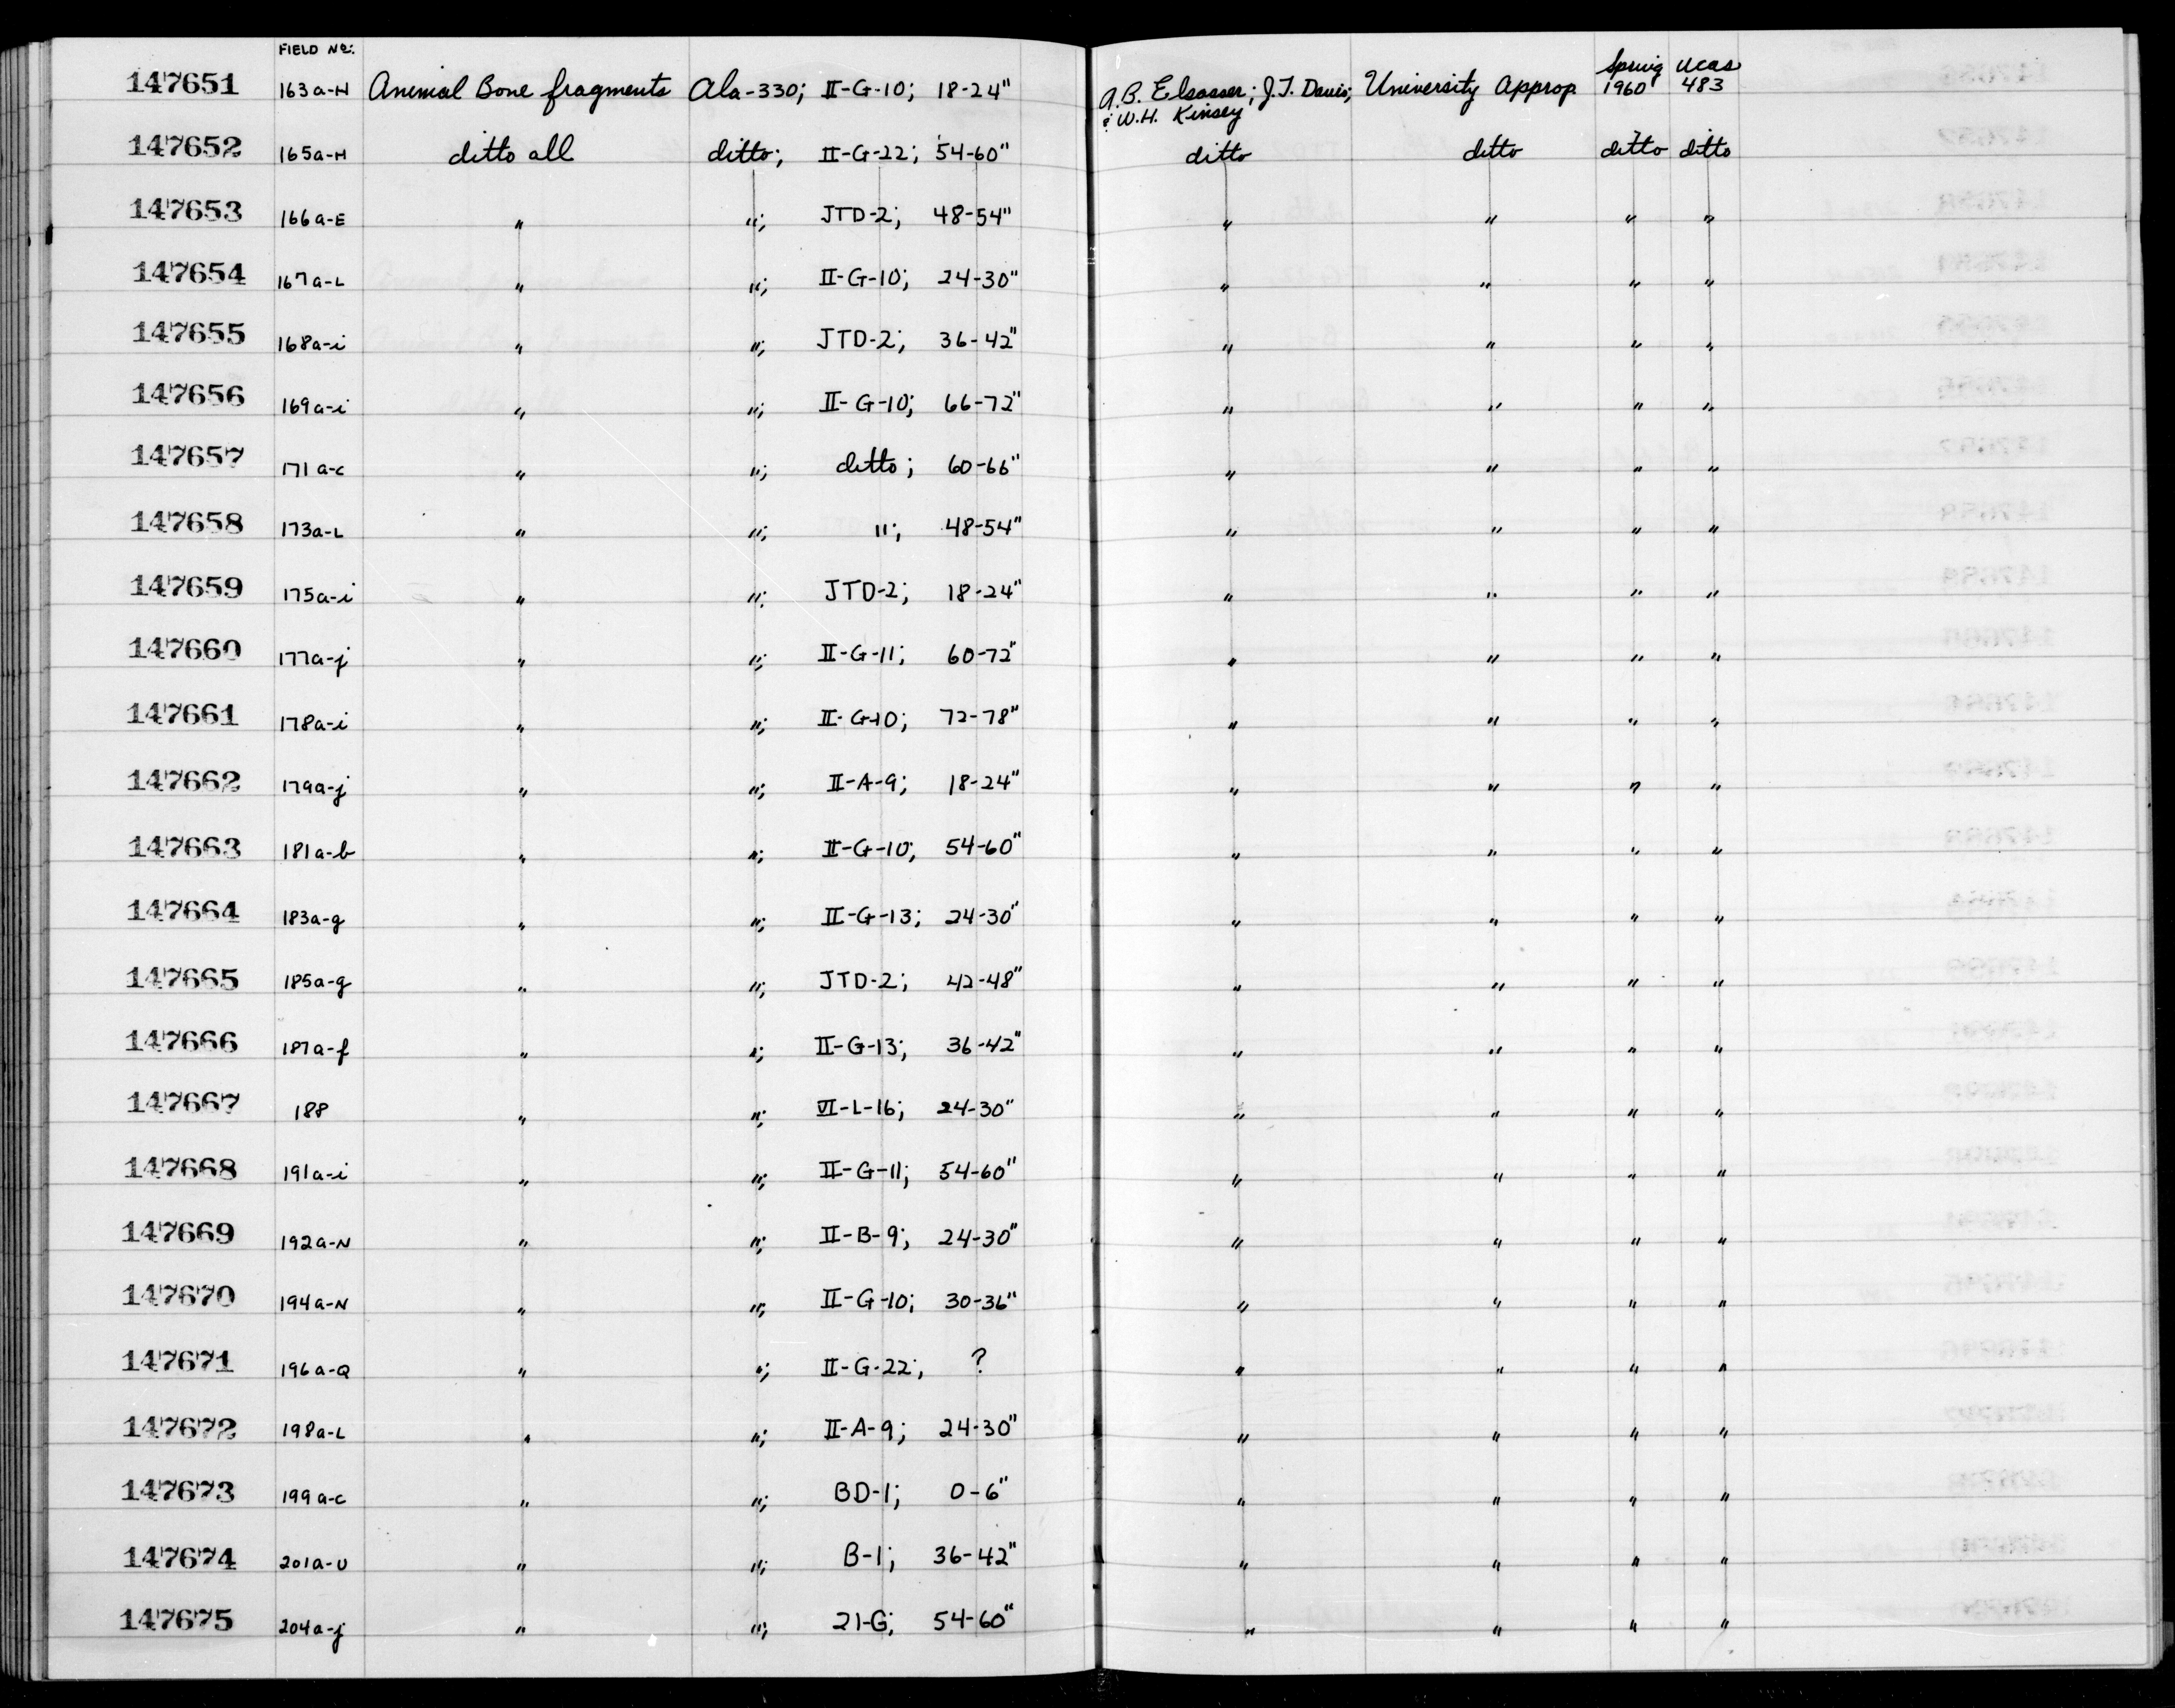 FIELD No:
147651 163a-H Animal Bone fragments Ala-330; II-G-10; 18-24" A.B. Elsasser; J.T. Davis; & W.H. Kinsey University Approp. Spring 1960 UCAS 483
147652 165a-H ditto all ditto; II-G-22; 54-60" ditto ditto ditto ditto
147653 166a-E " "; JTD-2; 48-54" " " " "
147654 167a-L " "; II-G-10; 24-30" " " " "
147655 168a-i " "; JTD-2; 36-42" " " " "
147656 169a-i " "; II-G-10; 66-72" " " " "
147657 171a-c " "; ditto; 60-66" " " " "
147658 173a-L " "; "; 48-54" " " " "
147659 175a-i " "; JTD-2; 18-24" " " " "
147660 177a-j " "; II-G-11; 60-72" " " " "
147661 178a-i " "; II-G-10; 72-78" " " " "
147662 179a-j " "; II-A-9; 18-24" " " " "
147663 181a-b " "; II-G-10; 54-60" " " " "
147664 183a-g " "; II-G-13; 24-30" " " " "
147665 185a-g " "; JTD-2; 42-48" " " " "
147666 187a-f " "; II-G-13; 36-42" " " " "
147667 188 " "; VI-L-16; 24-30" " " " "
147668 191a-i " "; II-G-11; 54-60" " " " "
147669 192a-N " "; II-B-9; 24-30" " " " "
147670 194a-N " "; II-G-10; 30-36" " " " "
147671 196a-Q " "; II-G-22; ? " " " "
147672 198a-L " "; II-A-9; 24-30" " " " "
147673 199a-c " "; BD-1; 0-6" " " " "
147674 201a-U " "; B-1; 36-42" " " " "
147675 204a-j " "; 21-G; 54-60" " " " "